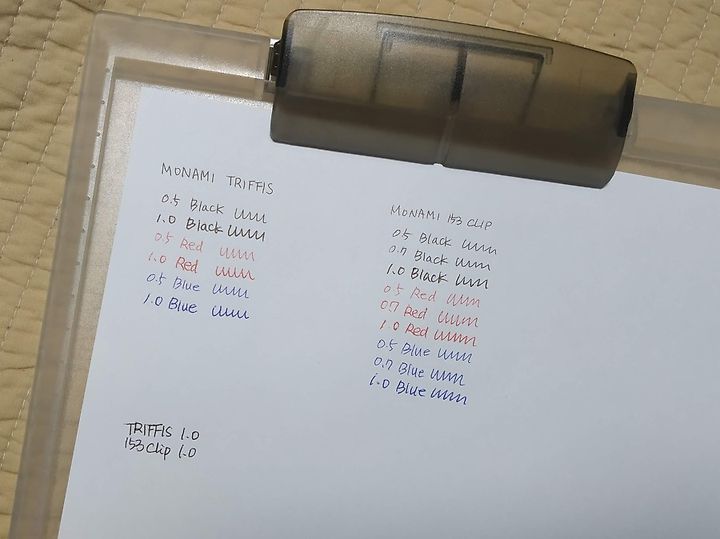 MONAMI TRIFFIS
0.5 Black
1.0 Black
0.5 Red
1.0 Red
0.5 Blue
1.0 Blue
MONAMI 153 CLIP
0.5 Black
0.7 Black
1.0 Black
0.5 Red
0.7 Red
1.0 Red
0.5 Blue
0.7 Blue
1.0 Blue
TRIFFIS 1.0
153 Clip 1.0